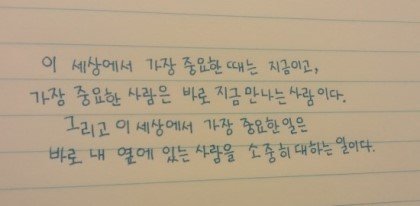 이 세상에서 가장 중요한 때는 지금이고,
가장 중요한 사람은 바로 지금 만나는 사람이다.
그리고 이 세상에서 가장 중요한 일은
바로 내 옆에 있는 사람을 소중히 대하는 일이다.